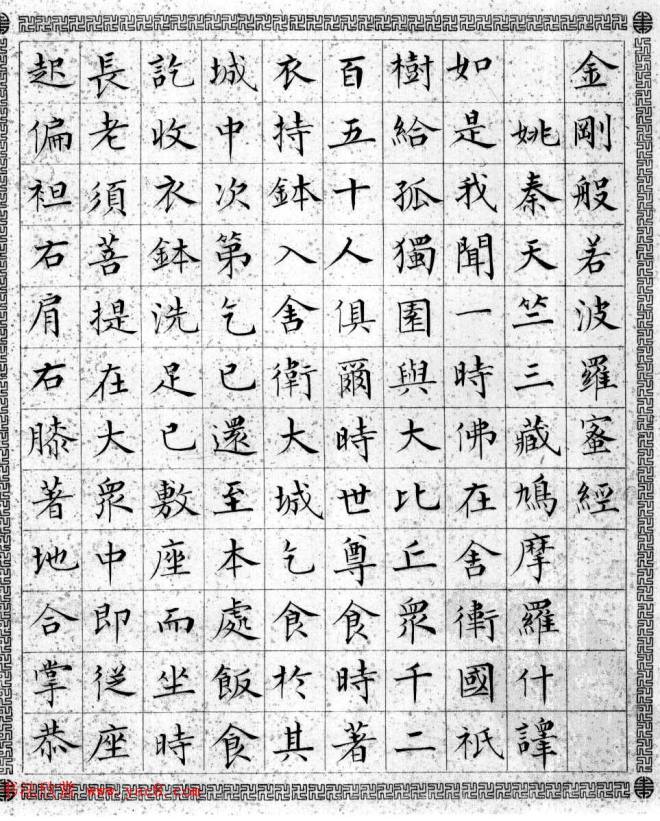 金剛般若波羅蜜經
姚秦天竺三藏鳩摩羅什譯
如是我聞一時佛在舍衛國祇
樹給孤獨園與大比丘衆千二
百五十人俱爾時世尊食時著
衣持鉢入舍衛大城乞食於其
城中次第乞已還至本處飯食
訖收衣鉢洗足已敷座而坐時
長老須菩提在大衆中即從座
起偏袒右肩右膝著地合掌恭
书法欣赏 www.yac8.com